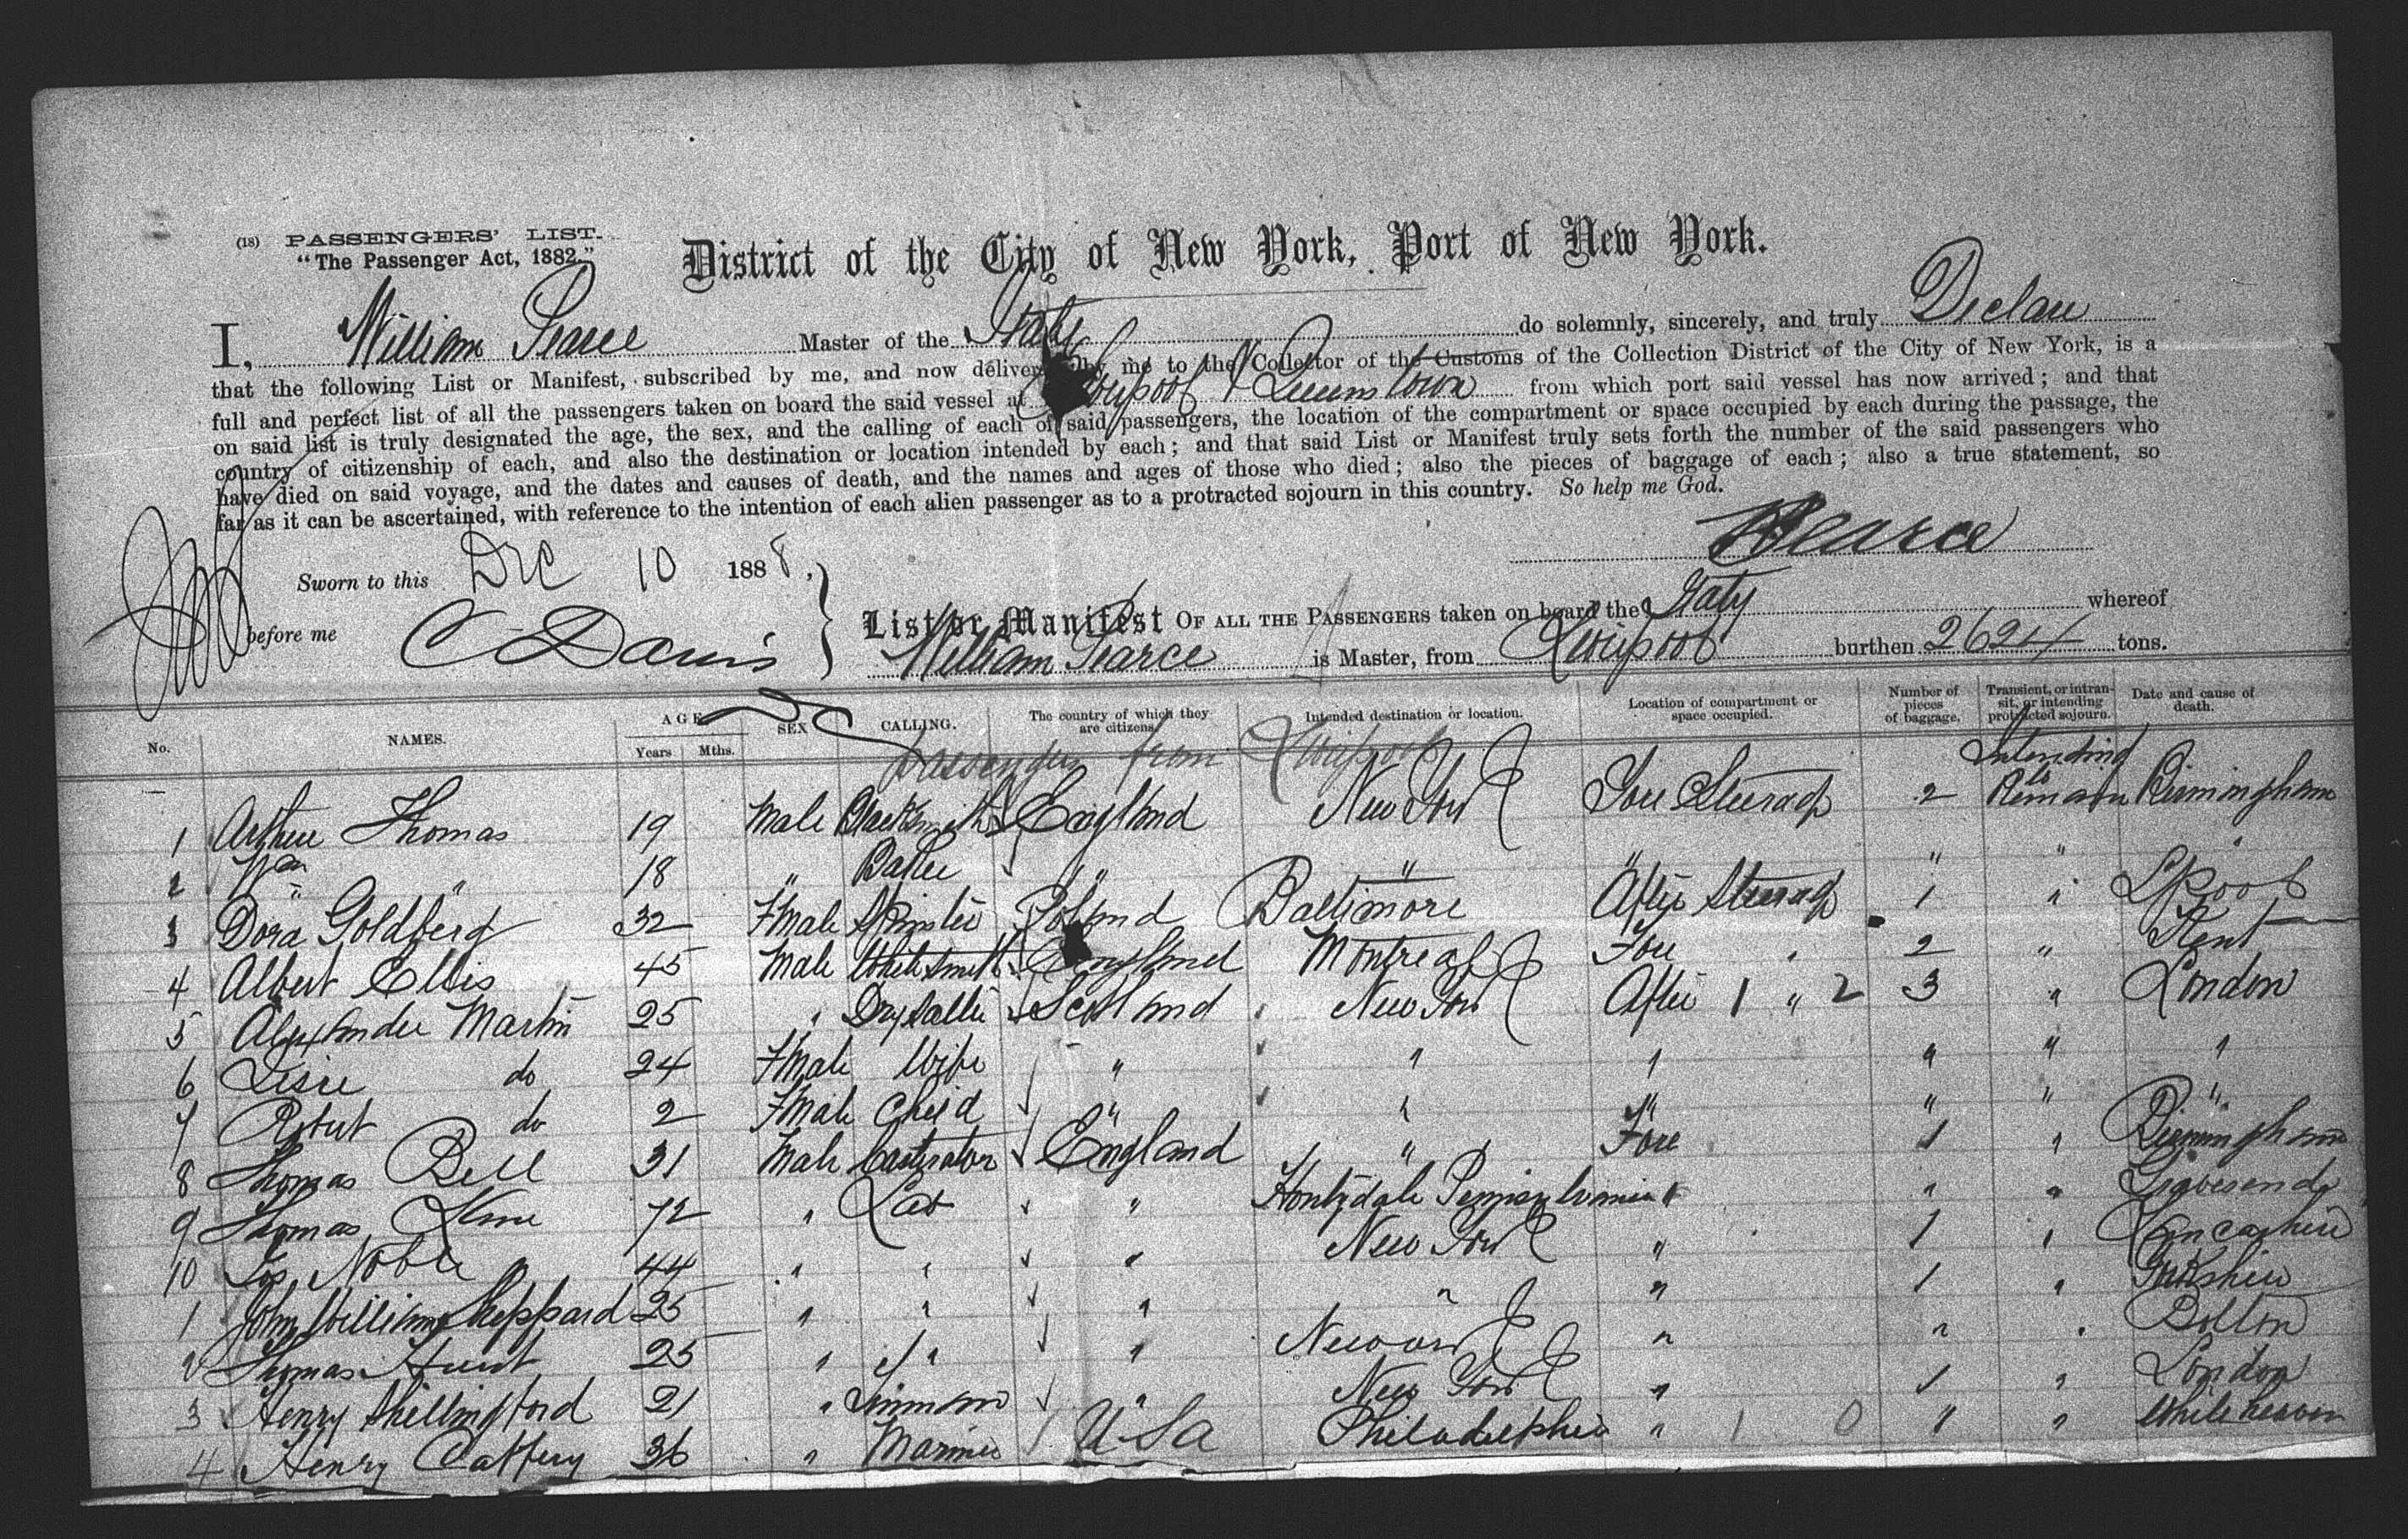 (18) PASSENGERS' LIST.
"The Passenger Act, 1882."
District of the City of New York, Port of New York.
I, William Pearce Master of the Italy do solemnly, sincerely, and truly Declare
that the following List or Manifest, subscribed by me, and now delivered by me to the Collector of the Customs of the Collection District of the City of New York, is a
full and perfect list of all the passengers taken on board the said vessel at Liverpool & Queenstown from which port said vessel has now arrived; and that
on said list is truly designated the age, the sex, and the calling of each of said passengers, the location of the compartment or space occupied by each during the passage, the
country of citizenship of each, and also the destination or location intended by each; and that said List or Manifest truly sets forth the number of the said passengers who
have died on said voyage, and the dates and causes of death, and the names and ages of those who died; also the pieces of baggage of each; also a true statement, so
far as it can be ascertained, with reference to the intention of each alien passenger as to a protracted sojourn in this country. So help me God.
WPearce
Sworn to this Dec 10 1888,
before me C Davis
List or Manifest OF ALL THE PASSENGERS taken on board the Italy whereof
William Pearce is Master, from Liverpool burthen 2624 tons.
No. NAMES. AGE Years Mths. SEX CALLING. The country of which they are citizens. Intended destination or location. Location of compartment or space occupied. Number of pieces of baggage. Transient, or in transit, or intending protracted sojourn. Date and cause of death.
Passengers from Liverpool
1 Arthur Thomas 19 Male Blacksmith England New York Fore Steerage 2 Intending to Remain Birmingham
2 Wm " 18 " Baker " " " " " "
3 Dora Goldberg 32 Fmale Spinster Poland Baltimore After Steerage 1 " LPool
4 Albert Ellis 45 Male Whitesmith England Montreal Fore " 2 " Kent
5 Alexander Martin 25 " Drysalter Scotland New York After 1 " 2 3 " London
6 do 24 Fmale Wife " " " " " "
7 Robert do 2 Fmale Child " " " " " "
8 Thomas Bell 31 Male England " Fore 1 " Birmingham
9 Thomas 72 " Lab " Pennsylvania " " " Gravesend
10 Jos Noble 44 " " " New York " 1 " Lancashire
1 John William Sheppard 25 " " " " " 1 " Yorkshire
2 Thomas Hunt 25 " " " Newark " " " Bolton
3 Henry Shillingford 21 " " New York " 1 " London
4 Henry Caffery 36 " Mariner U.S.A Philadelphia " 1 0 " " Whitehaven